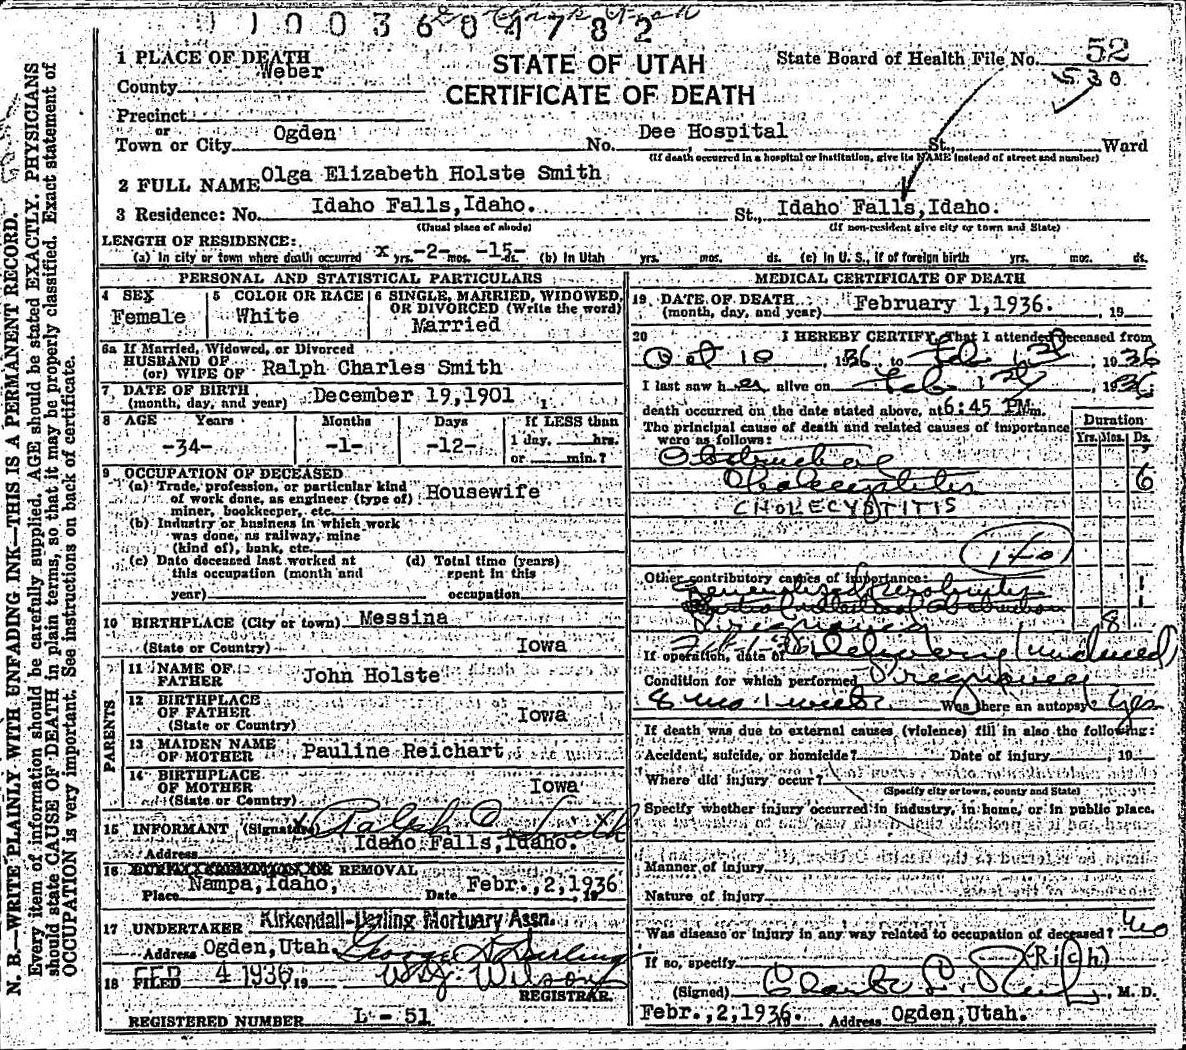 11003604782
STATE OF UTAH
CERTIFICATE OF DEATH
State Board of Health File No. 52
530
1 PLACE OF DEATH
County Weber
Precinct
or
Town or City Ogden No. Dee Hospital St., Ward
(If death occurred in a hospital or institution, give its NAME instead of street and number)
2 FULL NAME Olga Elizabeth Holste Smith
3 Residence: No. Idaho Falls, Idaho. St., Idaho Falls, Idaho.
(Usual place of abode) (If non-resident give city or town and State)
LENGTH OF RESIDENCE:
(a) In city or town where death occurred x yrs. -2- mos. -15- ds. (b) In Utah yrs. mos. ds. (c) In U. S., if of foreign birth yrs. mos. ds.
PERSONAL AND STATISTICAL PARTICULARS
4 SEX Female
5 COLOR OR RACE White
6 SINGLE, MARRIED, WIDOWED, OR DIVORCED (Write the word) Married
6a If Married, Widowed, or Divorced
HUSBAND OF
(or) WIFE OF Ralph Charles Smith
7 DATE OF BIRTH
(month, day, and year) December 19, 1901
8 AGE Years Months Days If LESS than
-34- -1- -12- 1 day, hrs.
or min.?
9 OCCUPATION OF DECEASED
(a) Trade, profession, or particular kind
of work done, as engineer (type of) Housewife
miner, bookkeeper, etc.
(b) Industry or business in which work
was done, as railway, mine
(kind of), bank, etc.
(c) Date deceased last worked at
this occupation (month and
year)
(d) Total time (years)
spent in this
occupation
10 BIRTHPLACE (City or town) Messina
(State or Country) Iowa
PARENTS
11 NAME OF
FATHER John Holste
12 BIRTHPLACE
OF FATHER Iowa
(State or Country)
13 MAIDEN NAME
OF MOTHER Pauline Reichart
14 BIRTHPLACE
OF MOTHER Iowa
(State or Country)
15 INFORMANT (Signature) X Ralph C Smith
Address Idaho Falls, Idaho.
16 BURIAL, CREMATION OR REMOVAL
Place Nampa, Idaho, Date Febr., 2, 1936 19
17 UNDERTAKER Kirkendall-Darling Mortuary Assn.
Address Ogden, Utah. George Darling
18 FILED FEB 4 1936 19 W J. Wilson
REGISTRAR.
REGISTERED NUMBER L - 51
MEDICAL CERTIFICATE OF DEATH
19 DATE OF DEATH
(month, day, and year) February 1, 1936. 19
20 I HEREBY CERTIFY, That I attended deceased from
Oct 10 1936 to Feb 1st, 1936
I last saw her alive on Feb 1st, 1936
death occurred on the date stated above, at 6:45 PM m.
The principal cause of death and related causes of importance
were as follows:
Duration
Yrs. Mos. Ds.
Obstructive
6
CHOLECYSTITIS
140
Other contributory causes of importance:
Pregnancy 8
If operation, date of 2-1-36 Delivery (induced)
Condition for which performed Pregnancy
8 mo 1 week. Was there an autopsy? Yes
If death was due to external causes (violence) fill in also the following:
Accident, suicide, or homicide? Date of injury , 19
Where did injury occur?
(Specify city or town, county and State)
Specify whether injury occurred in industry, in home, or in public place.
Manner of injury
Nature of injury
Was disease or injury in any way related to occupation of deceased? No
If so, specify (Rich)
(Signed) Rich, M. D.
Febr., 2, 1936. Address Ogden, Utah.
N. B.—WRITE PLAINLY WITH UNFADING INK—THIS IS A PERMANENT RECORD.
Every item of information should be carefully supplied. AGE should be stated EXACTLY. PHYSICIANS
should state CAUSE OF DEATH in plain terms, so that it may be properly classified. Exact statement of
OCCUPATION is very important. See instructions on back of certificate.